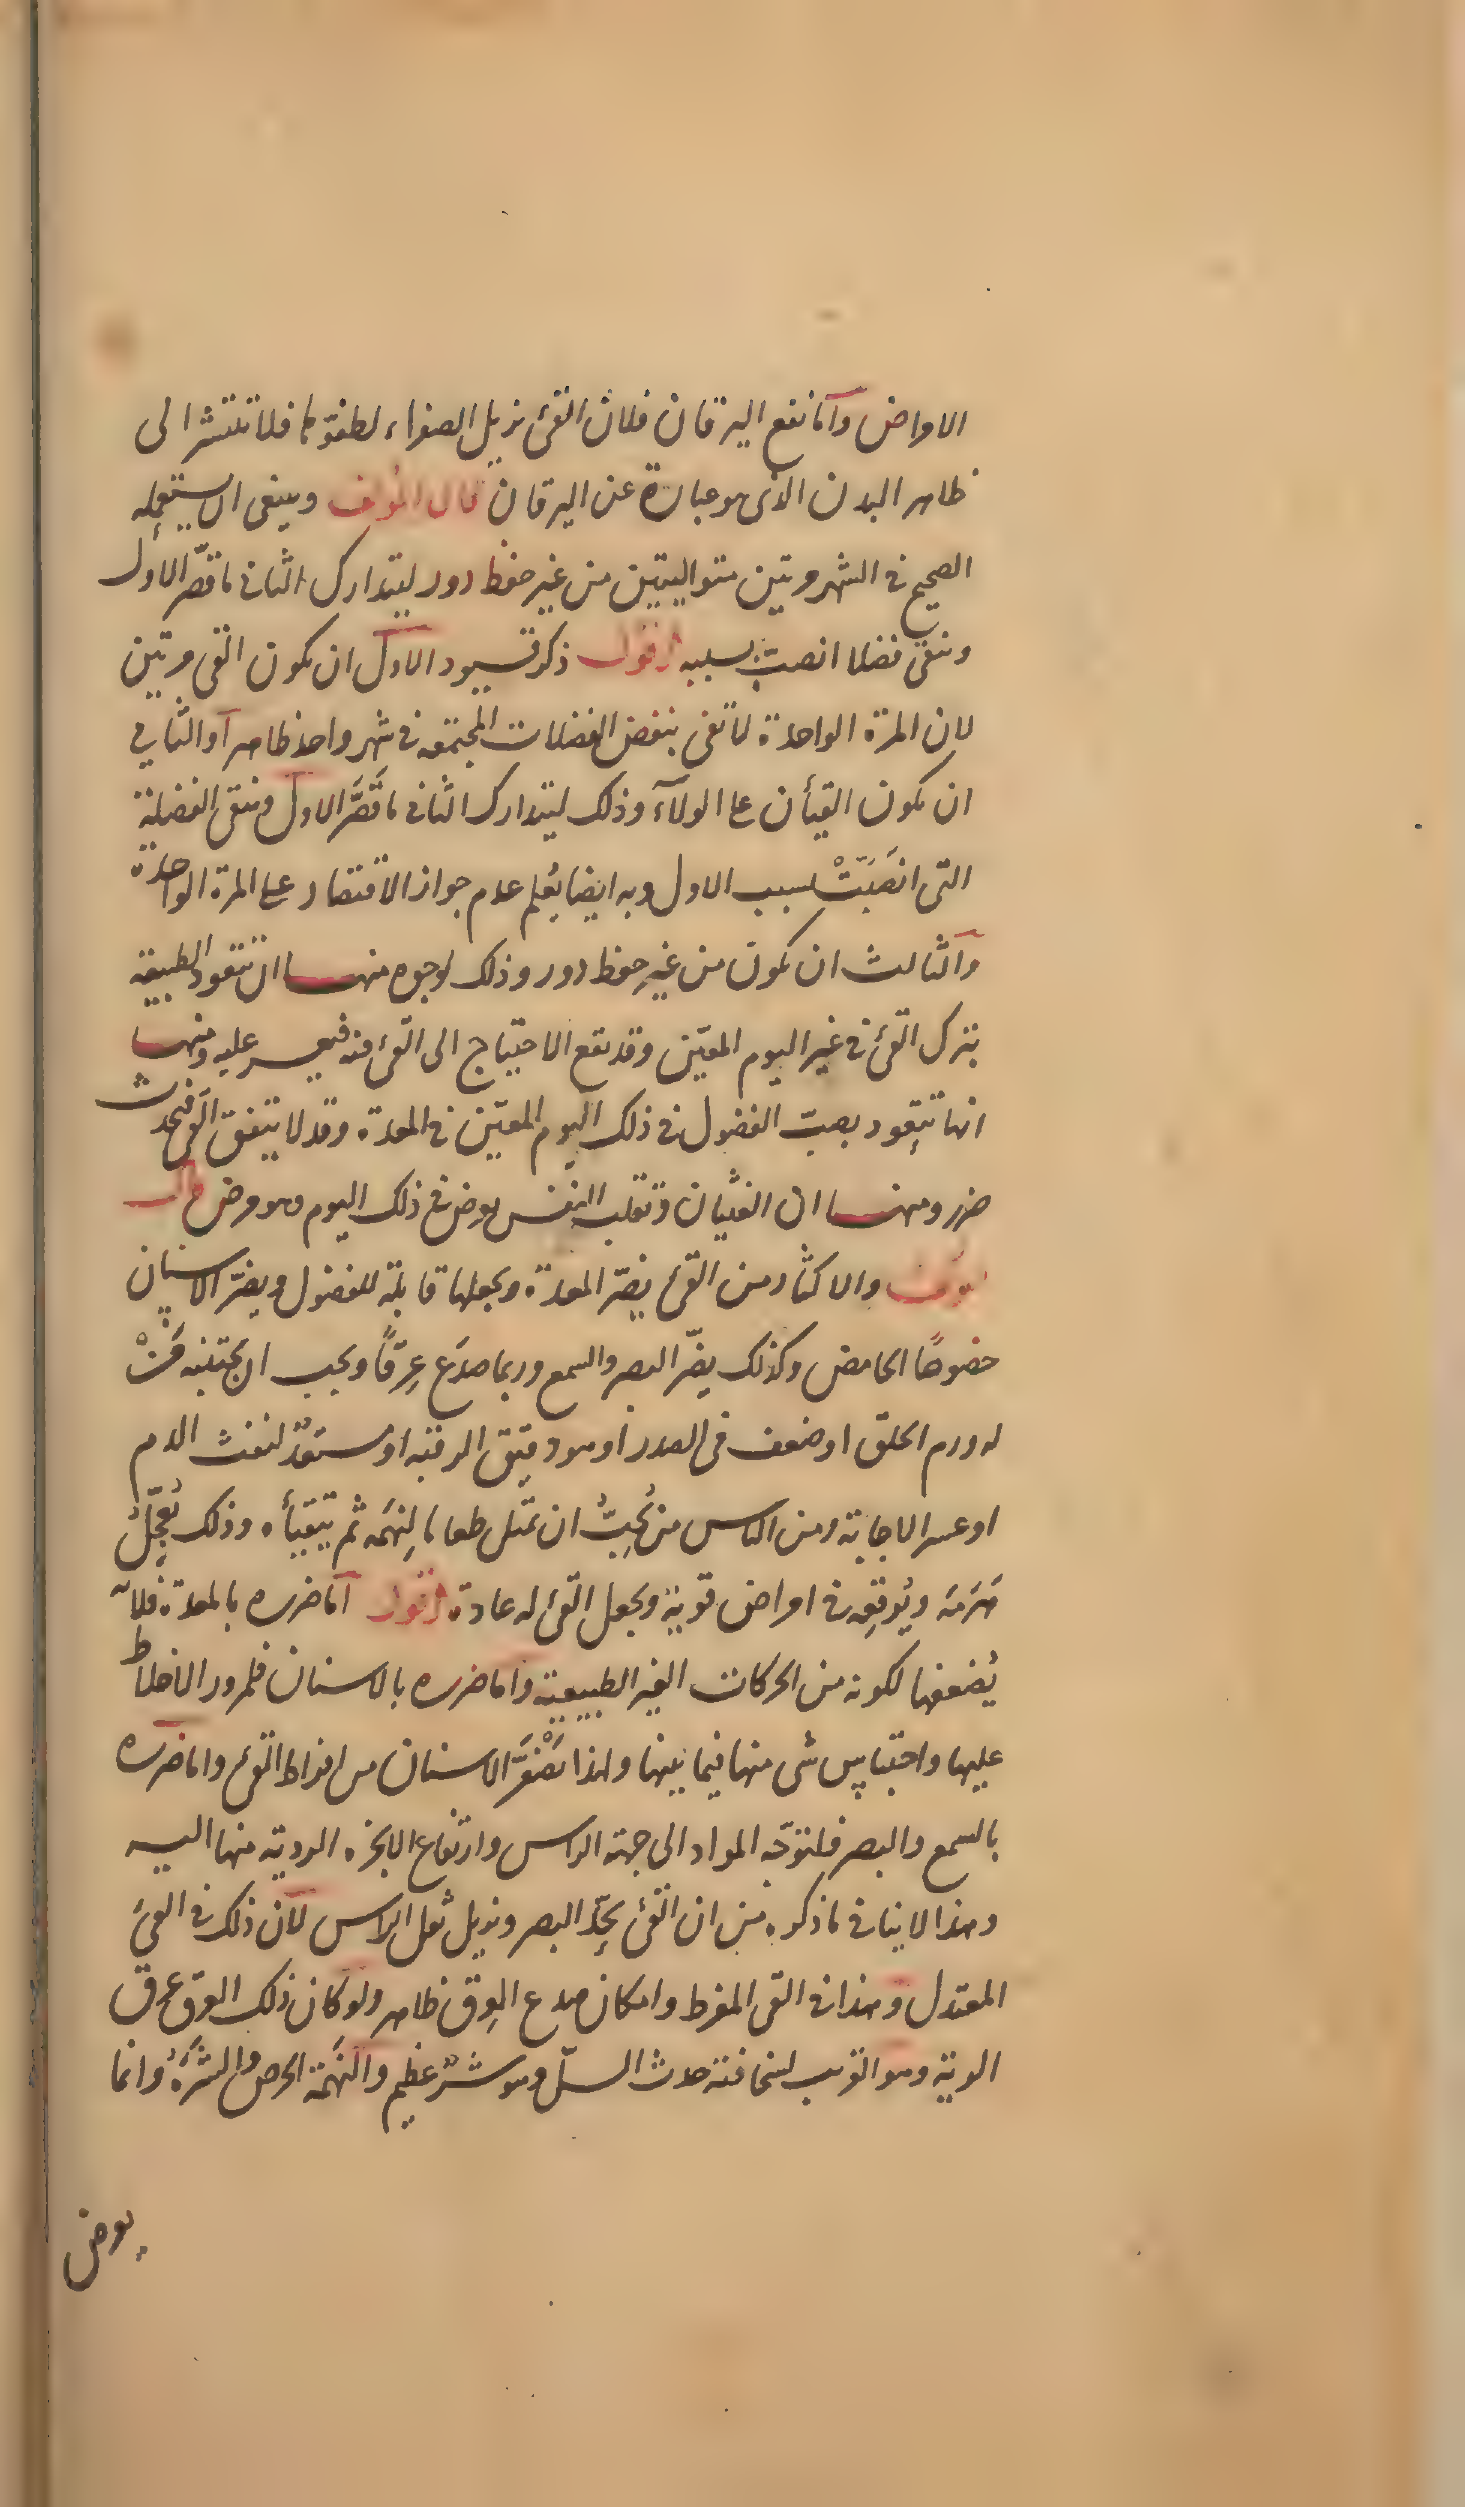 الامراض وآما نفع اليرقان فلان القئ يزيل الصفراء لطفوّها فلا تنتشر الى
ظاهر البدن الذى هو عبارة عن اليرقان قال المؤلف وينبغى ان يستعمله
الصحيح فى الشهر مرتين متواليتين من غير حفظ دور ليتدارك الثانى ما قصّر الاول
وينقى فضلا انصبّ بسببه اقول ذكر قيود الآول ان يكون القئ مرتين
لان المرة الواحدة لا تفى بنفض الفضلات المجتمعه فى شهر واحد ظاهرا والثانى
ان يكون القيأن على الولآء وذلك ليتدارك الثانى ما قَصَّر الاول وينقى الفضلة
التى انصَبَّتْ بسبب الاول وبه ايضا يُعلم عدم جواز الاقتصار على المرة الواحدة
وآلثالث ان يكون من غير حفظ دور وذلك لوجوه منها ان تتعود الطبيعة
بترك القئ فى غير اليوم المعيّن وقد تقع الاحتياج الى القئ فيه فيعسر عليه ومنها
انها تتعود بصبّ الفضول فى ذلك اليوم المعيّن فى المعدة وقد لا يتفق القئ فيحدث
ضرر ومنها ان الغثيان وتقلب النفس يعرض فى ذلك اليوم وهو مرض قال
المؤلف والاكثار من القئ يضرّ المعدة ويجعلها قابلة للفضول ويضرّ الاسنان
خصوصًا الحامض وكذلك يضرّ البصر والسمع وربما صدَع عِرقًا ويجب ان يجتنبه مَنْ
له ورم الحلق او ضعف فى الصدر او هو دقيق الرقبه او مستعدّ لنفث الدم
او عسر الاجابة ومن الناس من يُحِبُّ ان يمتلى طعاما لِنَهَمَه ثم يتقيأه وذلك يُعَجِّلُ
هَرَمَه ويُوقِعه فى امراض قوية ويجعل القئ له عادة اقول آما ضرره بالمعدة فلآنه
يُضعفها لكونه من الحركات الغير الطبيعية واما ضرره بالاسنان فلمرور الاخلاط
عليها واحتباس شى منها فيما بينها ولهذا تَصْفَرّ الاسنان من افراط القئ واما ضرره
بالسمع والبصر فلتوجّه المواد الى جهة الراس وارتفاع الابخره الردية منها اليه
وهذا لا ينافى ما ذكره من ان القئ يُحِدّ البصر ويزيل ثقل الراس لآن ذلك فى القئ
المعتدل وهذا فى القى المفرط وامكان صدع العِرق ظاهر ولو كان ذلك العرق عرق
الرية وهو القريب لسخافته حدث السلّ وهو شرّ عظيم والنَهَمة الحرص والشَرَه وانما
يعرض